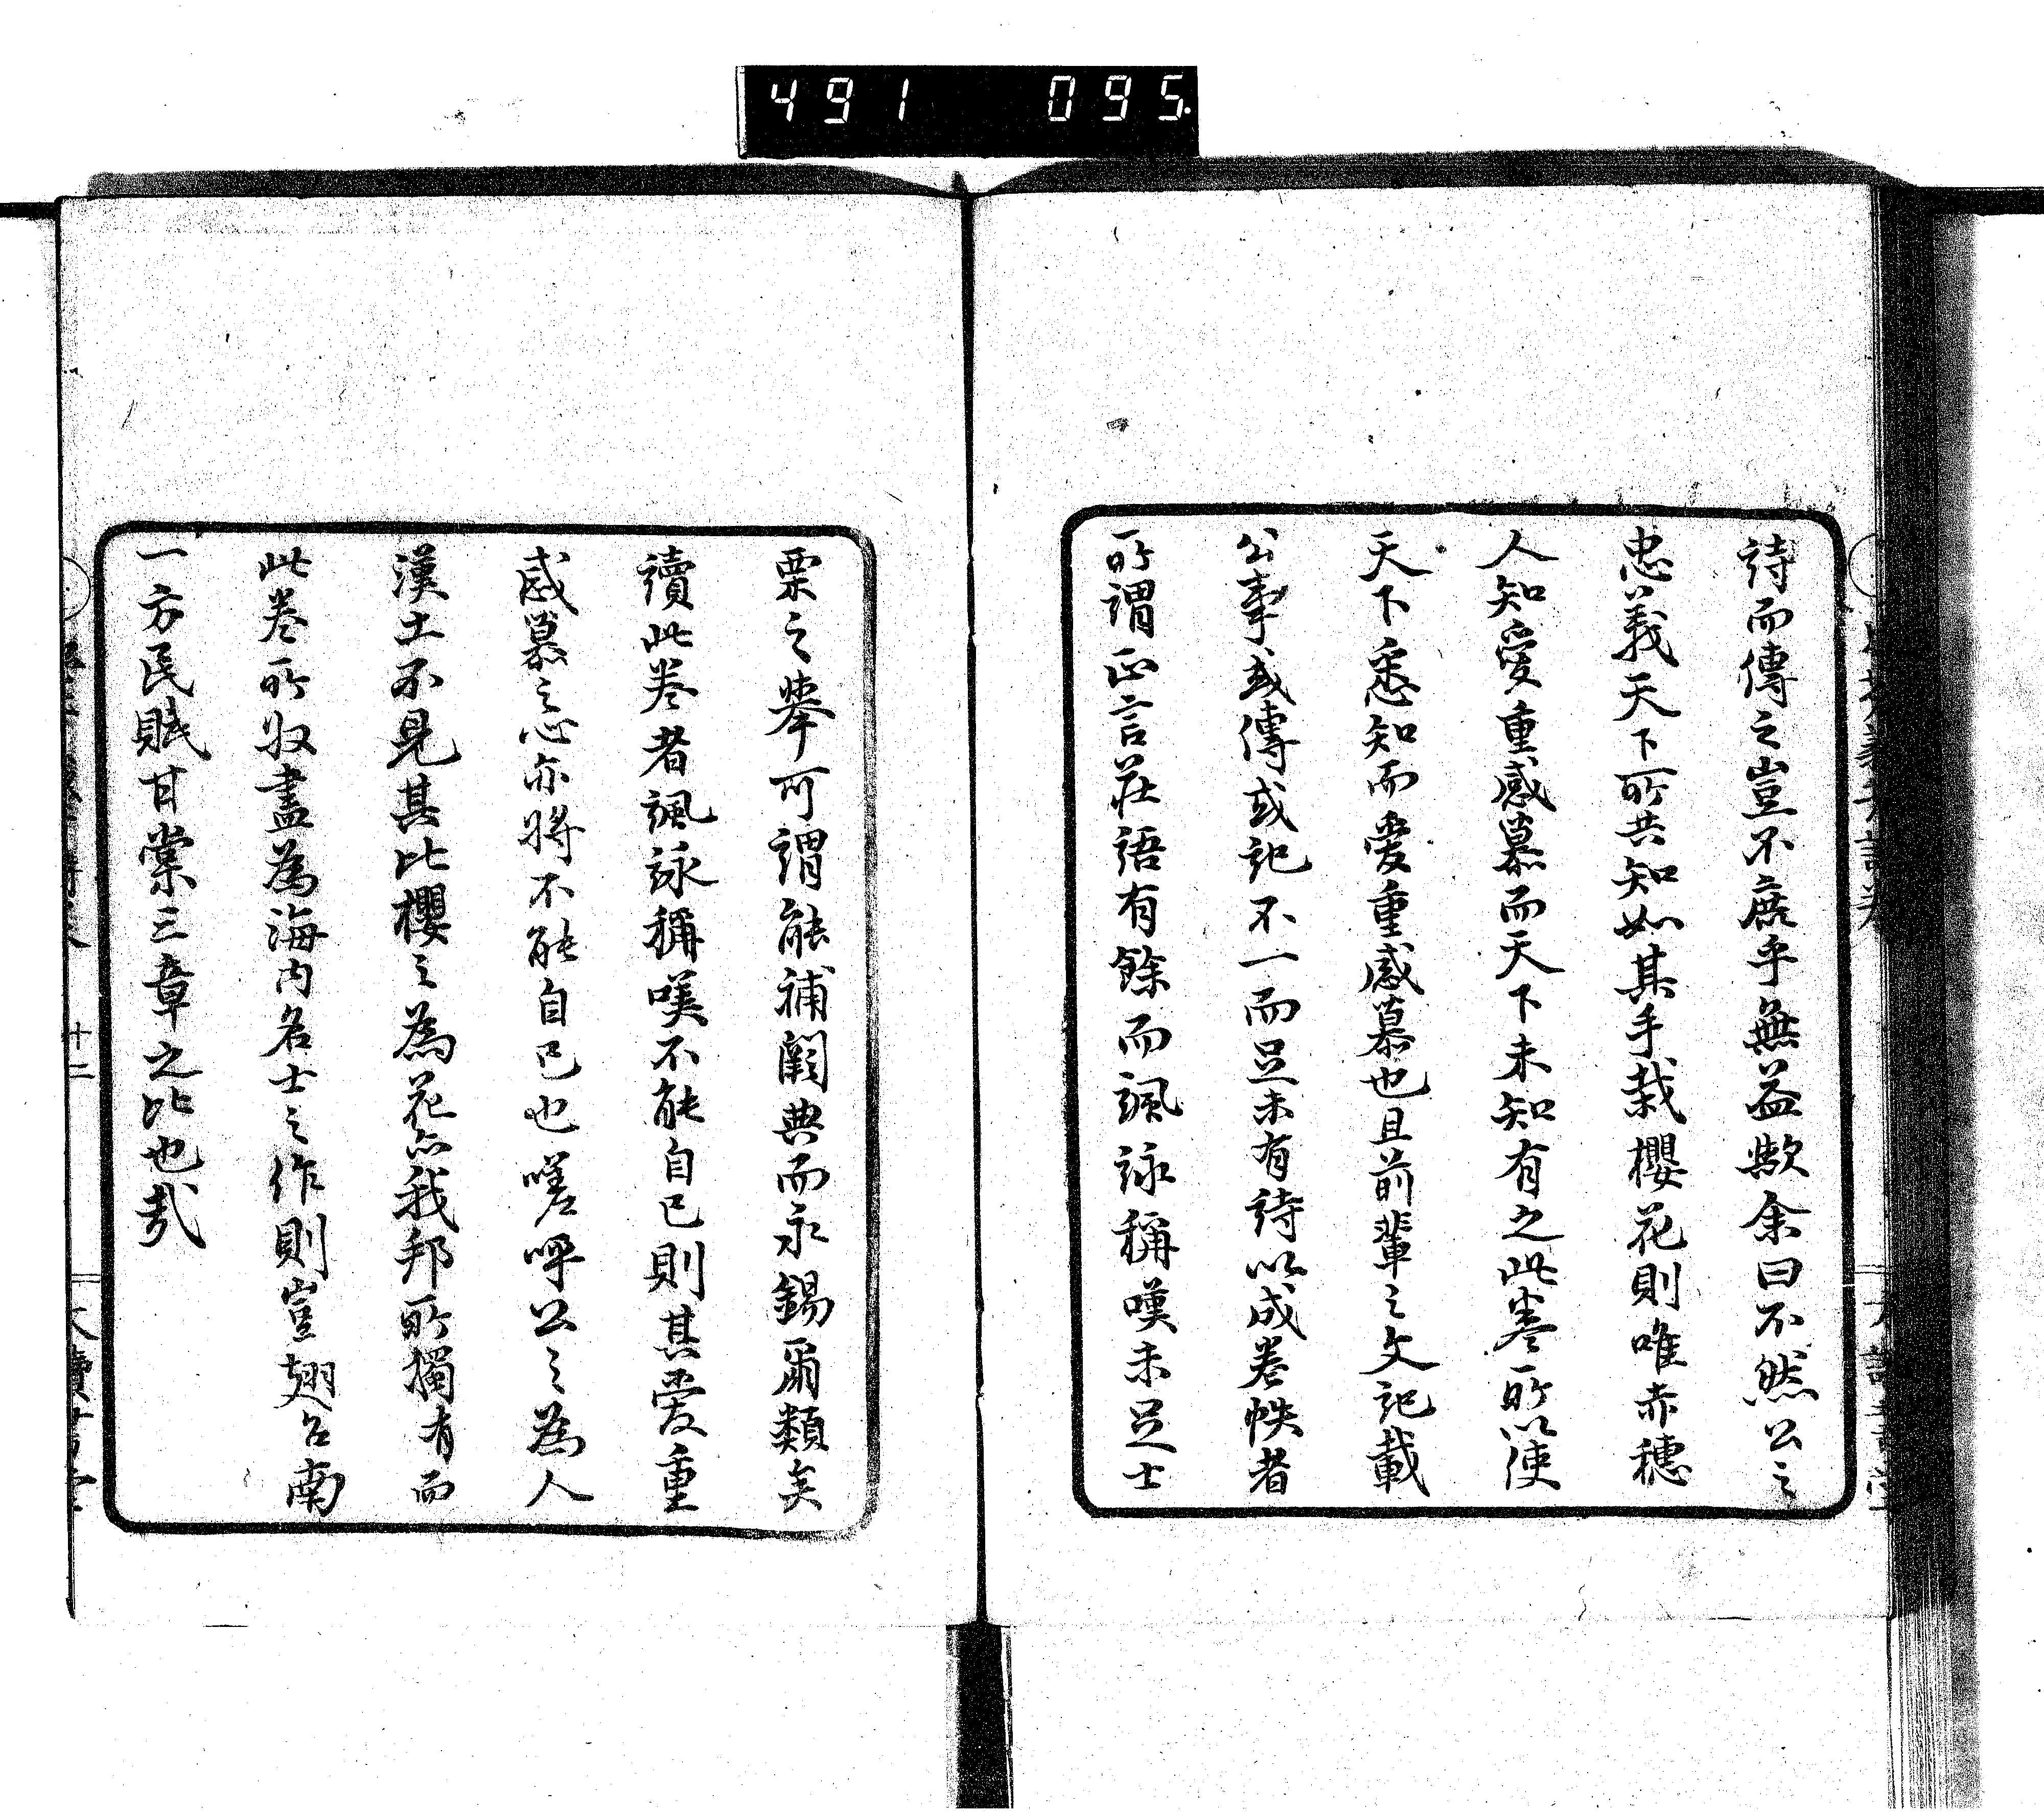 491 095
詩而傳之豈不庶乎無益歟余曰不然公之
忠義天下所共知如其手栽櫻花則唯赤穗
人知愛重感慕而天下未知有之此卷所以使
天下悉知而愛重感慕也且前輩之文記載
公事或傳或記不一而足未有詩以成卷帙者
所謂正言莊語有餘而諷詠稱嘆未足士
栗之舉可謂能補闕典而永錫爾類矣
讀此卷者諷詠稱嘆不能自已則其愛重
感慕之心亦將不能自已也嗟呼公之為人
漢土不見其比櫻之為花亦我邦所獨有而
此卷所收盡為海内名士之作則豈翅召南
一方民賦甘棠三章之比也哉
十二